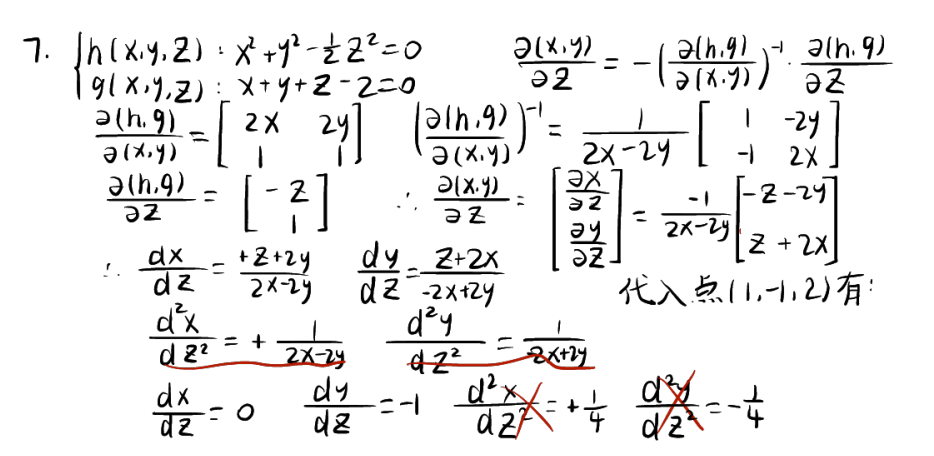 7. { h(x,y,z) : x²+y²-½z²=0
g(x,y,z) : x+y+z-2=0
∂(x,y)/∂z = -(∂(h,g)/∂(x,y))⁻¹ · ∂(h,g)/∂z
∂(h,g)/∂(x,y) = [2x 2y; 1 1] (∂(h,g)/∂(x,y))⁻¹ = 1/(2x-2y) [1 -2y; -1 2x]
∂(h,g)/∂z = [-z; 1] ∴ ∂(x,y)/∂z = [∂x/∂z; ∂y/∂z] = -1/(2x-2y) [-z-2y; z+2x]
∴ dx/dz = (+z+2y)/(2x-2y) dy/dz = (z+2x)/(-2x+2y)
代入点(1,-1,2)有:
d²x/dz² = + 1/(2x-2y) d²y/dz² = 1/(-2x+2y)
dx/dz = 0 dy/dz = -1 d²x/dz² = +1/4 d²y/dz² = -1/4